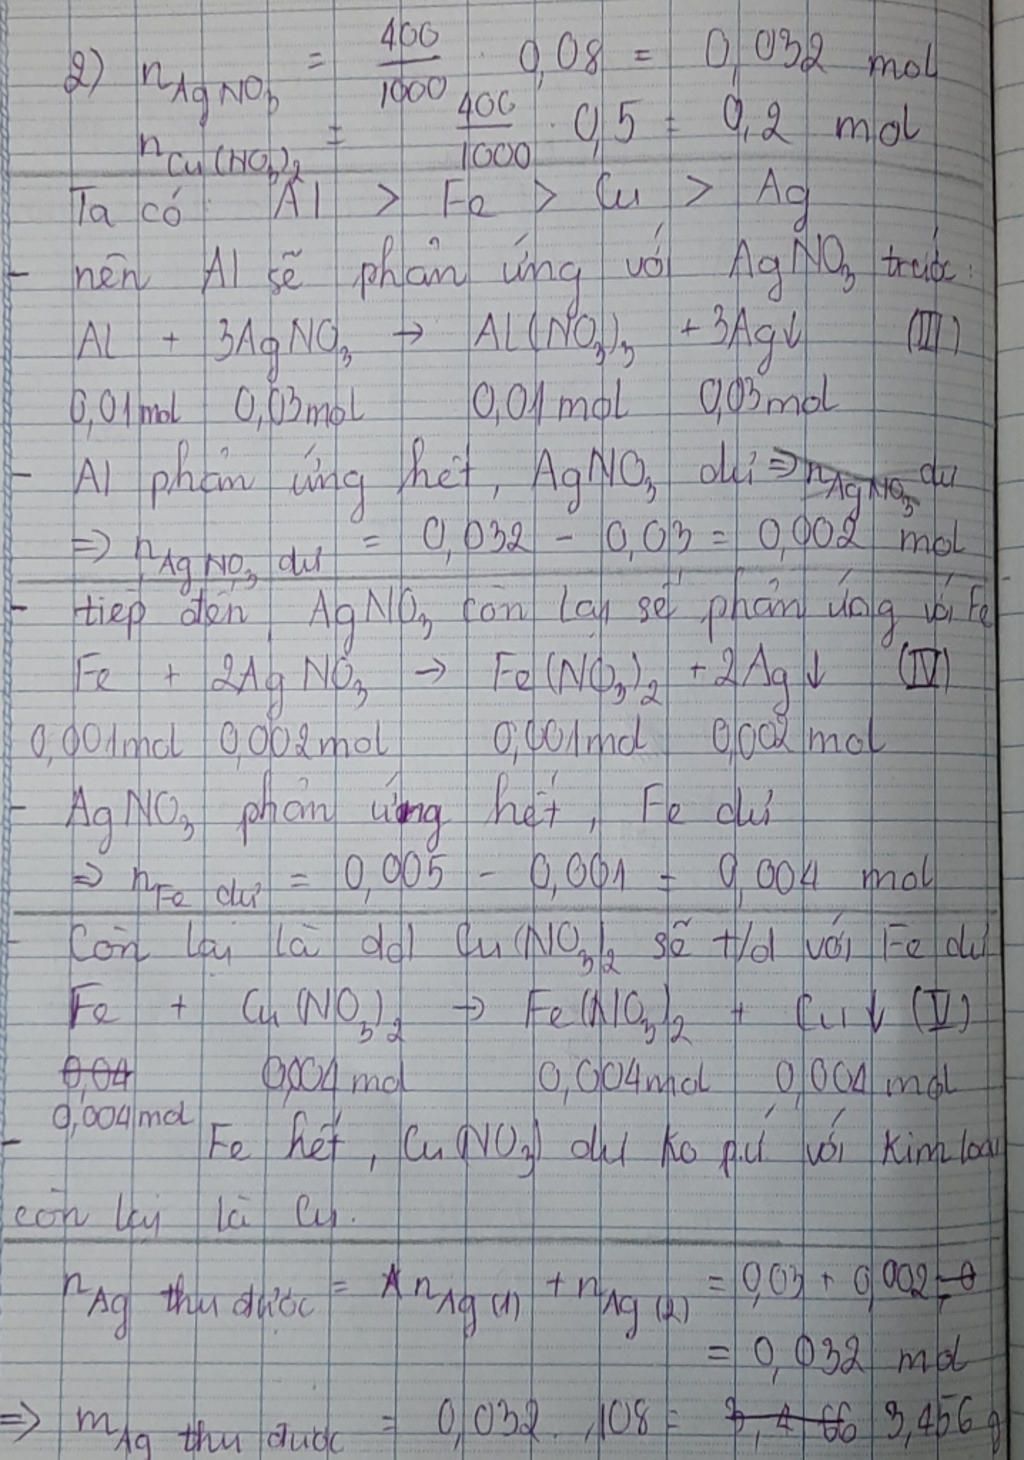 2) nAgNO3 = 400/1000 . 0,08 = 0,032 mol
nCu(NO3)2 = 400/1000 . 0,5 = 0,2 mol
Ta có: Al > Fe > Cu > Ag
- nên Al sẽ phản ứng với AgNO3 trước:
Al + 3AgNO3 → Al(NO3)3 + 3Ag↓ (III)
0,01mol 0,03mol 0,01mol 0,03mol
- Al phản ứng hết, AgNO3 dư ⇒ nAgNO3 dư
⇒ nAgNO3 dư = 0,032 - 0,03 = 0,002 mol
- tiếp đến, AgNO3 còn lại sẽ phản ứng với Fe
Fe + 2AgNO3 → Fe(NO3)2 + 2Ag↓ (IV)
0,001mol 0,002mol 0,001mol 0,002mol
- AgNO3 phản ứng hết, Fe dư
⇒ nFe dư = 0,005 - 0,001 = 0,004 mol
- Còn lại là dd Cu(NO3)2 sẽ t/d với Fe dư
Fe + Cu(NO3)2 → Fe(NO3)2 + Cu↓ (V)
0,04 0,004mol 0,004mol 0,004mol
0,004mol
- Fe hết, Cu(NO3) dư ko p.ứ với kim loại
còn lại là Cu.
nAg thu được = nAg (1) + nAg (2) = 0,03 + 0,002
= 0,032 mol
⇒ mAg thu được = 0,032 . 108 = 3,456 g